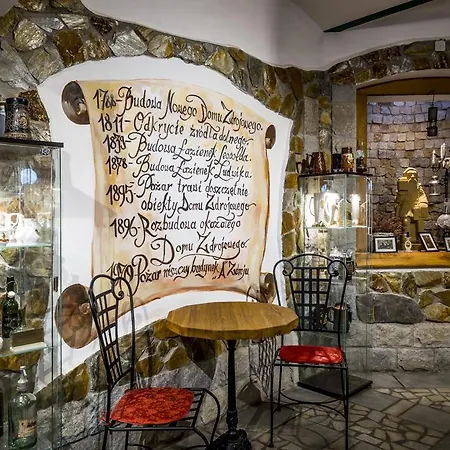 1786-Budowa Nowego Domu Zdrojowego.
1817-Odkrycie źródła dolnego.
1873-Budowa Łazienek Leopolda.
1878-Budowa Łazienek Ludwika.
1895-Pożar trawi doszczętnie
obiekty Domu Zdrojowego.
1896-Rozbudowa okazałego
Domu Zdrojowego.
Pożar niszczy budynek